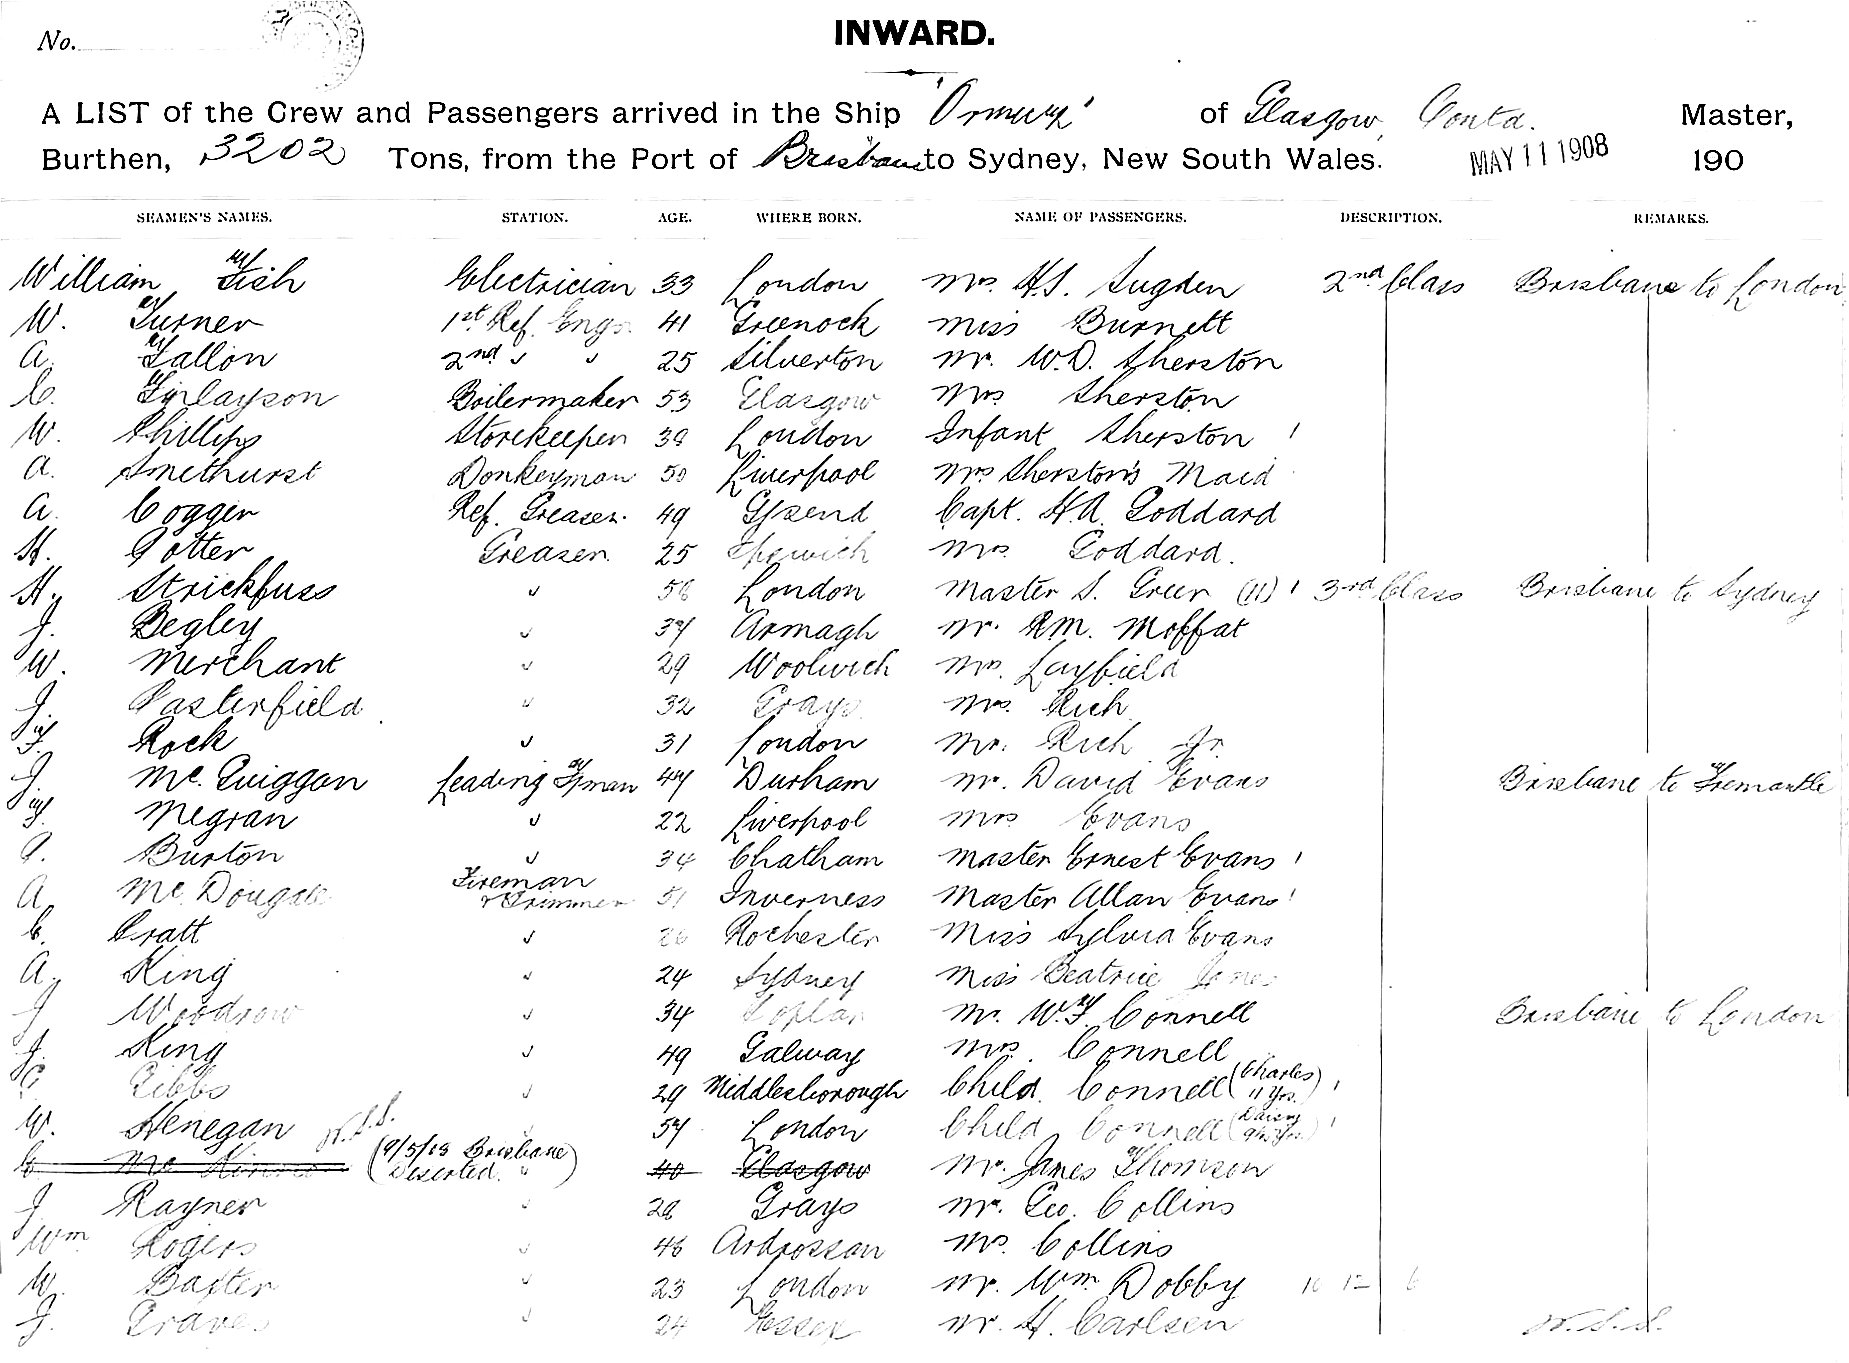 No.
INWARD.
A LIST of the Crew and Passengers arrived in the Ship 'Ormuz' of Glasgow, Contd. Master,
Burthen, 3202 Tons, from the Port of Brisbane to Sydney, New South Wales. MAY 11 1908 190
SEAMEN'S NAMES. STATION. AGE. WHERE BORN. NAME OF PASSENGERS. DESCRIPTION. REMARKS.
William Fish Electrician 33 London Mrs. H.S. Sugden 2nd Class Brisbane to London
W. Turner 1st Ref. Engr. 41 Greenock Miss Burnett
A. Fallon 2nd " " 25 Silverton Mr. W.D. Sherston
C. Finlayson Boilermaker 53 Glasgow Mrs Sherston
W. Phillips Storekeeper 38 London Infant Sherston 1
A. Smethurst Donkeyman 50 Liverpool Mrs Sherston's Maid
A. Cogger Ref. Greaser. 49 G/send Capt. H.A. Goddard
H. Potter Greaser. 25 Ipswich Mrs. Goddard.
H. Strickfuss " 58 London Master S. Green (11) 1 3rd Class Brisbane to Sydney
J. Begley " 37 Armagh Mr. R.M. Moffat
W. Merchant " 29 Woolwich Mrs. Layfield
J. Pasterfield " 32 Grays Mrs. Rich
F. Rock " 31 London Mr. Rich Jr.
J. McQuiggan Leading F/man 47 Durham Mr. David Evans Brisbane to Fremantle
Megran " 22 Liverpool Mrs Evans
Burton " 34 Chatham Master Ernest Evans 1
A. McDougall Fireman & Trimmer 51 Inverness Master Allan Evans 1
C. Pratt " 26 Rochester Miss Sylvia Evans
A. King " 24 Sydney Miss Beatrice Jones
J Woodrow " 34 Poplar Mr. W.F. Connell Brisbane to London
J. King " 49 Galway Mrs. Connell
Gibbs " 29 Middlesborough Child. Connell (Charles 11 Yrs.) 1
W. Henegan " 57 London Child Connell (Daisy 9 Yrs.) 1
C. Mc (9/5/08 Brisbane Deserted.) " 40 Glasgow Mr. James Thomson
J. Rayner " 28 Grays Mr. Geo. Collins
Wm Rogers " 46 Ardrossan Mrs. Collins
W. Baxter " 23 London Mr. Wm. Dobby 10 12 6
J. Graves " 24 Essex Mr. H. Carlsen